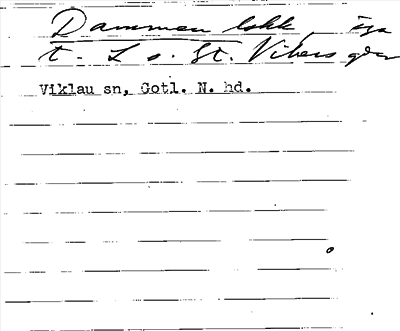 Dammen lokk äga
t. L o. St. Vikers gdr
Viklau sn, Gotl. N. hd.